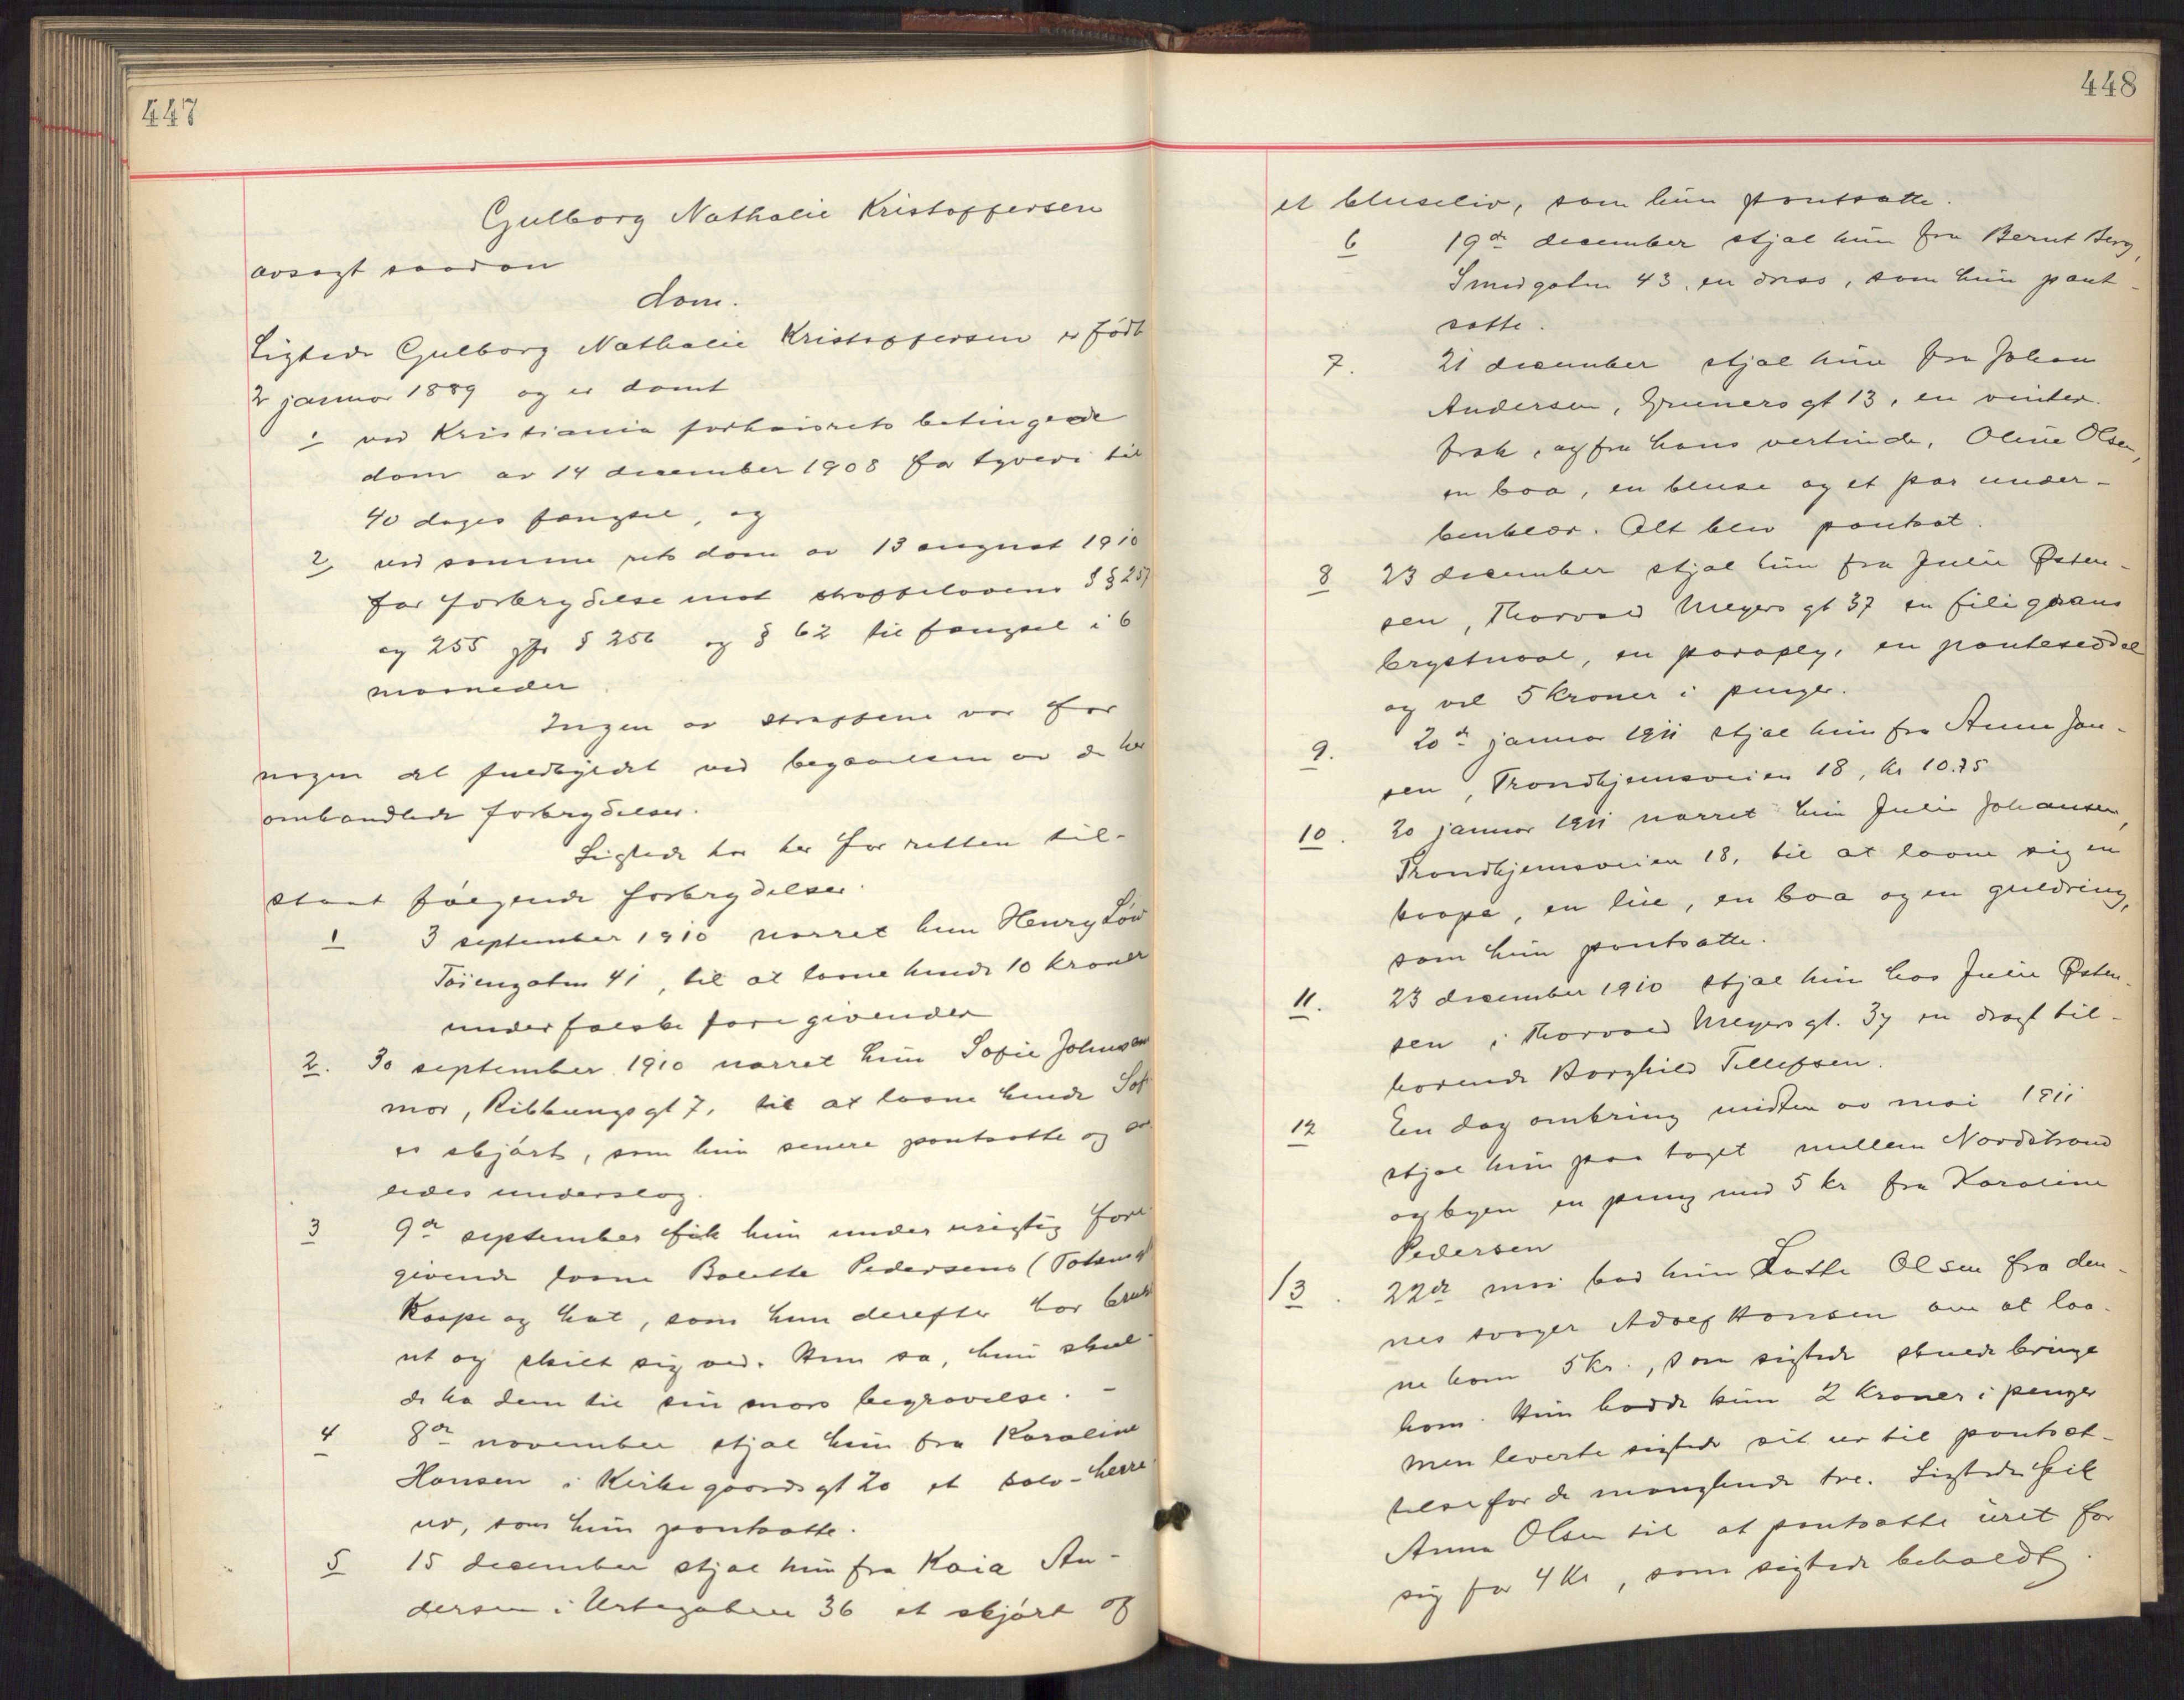 447
Gulborg Nathalie Kristoffersen
avsagt saadan
dom.
Sigtede Gulborg Nathalie Kristoffersen er født
2 januar 1889 og er dømt
1 ved Kristiania forhørsrets betingede
dom av 14 december 1908 for tyveri til
40 dages fængsel, og
2, ved samme rets dom av 13 august 1910
for forbrydelse mot straffelovens §§ 257
og 255 jfr § 256 og § 62 til fængsel i 6
maaneder.
Ingen av straffene var for
nogen del fuldbyrdet ved begaaelsen av de her
omhandlede forbrydelser.
Sigtede har her for retten til-
staat følgende forbrydelser.
1 3 september 1910 narret hun Henry Løv
Tøiengaten 41, til at laane hende 10 kroner
under falske foregivender
2. 30 september 1910 narret hun Sofie Johnsens
mor, Ribbungsgt 7, til at laane hende Sofi
es skjørt, som hun senere pantsatte og saa
ledes underslog.
3 9de september fik hun under urigtig fore
givende laane Bolette Pedersens (Totensgt
Kaape og hat, som hun derefter har brukt
ut og skilt sig ved. Hun sa, hun skul-
de ha dem til sin mors begravelse. –
4 8de november stjal hun fra Karoline
Hansen i Kirkegaardsgt 20 et sølv-herre
ur, som hun pantsatte.
5 15 december stjal hun fra Kaia An-
dersen i Urtegaten 36 et skjørt og
448
et bluseliv, som hun pantsatte.
6 19de december stjal hun fra Bernt Berg,
Smedgaten 43, en dress, som hun pant-
satte.
7. 21 december stjal hun fra Johan
Andersen, Grüners gt 13, en vinter-
frak, og fra hans vertinde, Oline Olsen,
en boa, en bluse og et par under-
benklær. Alt blev pantsat.
8 23 december stjal hun fra Julie Østen-
sen, Thorvald Meyers gt 37 en filigrans
brystnaal, en paraply, en panteseddel
og vel 5 kroner i penger.
9. 20de januar 1911 stjal hun fra Anna Jan-
sen, Trondhjemsveien 18, kr 10.75
10. 20 januar 1911 narret hun Julie Johansen,
Trondhjemsveien 18, til at laane sig en
kaape, en lue, en boa og en guldring,
som hun pantsatte.
11. 23 december 1910 stjal hun hos Julie Østen-
sen i Thorvald Meyers gt. 37 en dragt til-
hørende Borghild Tellefsen.
12 En dag omkring midten av mai 1911
stjal hun paa toget mellem Nordstrand
og byen en pung med 5 kr fra Karoline
Pedersen
13. 22de mai bad hun Lotte Olsen fra den-
nes svoger Adolf Hansen om at laa-
ne ham 5 kr., som sigtede skulde bringe
ham. Hun hadde kun 2 kroner i penger
men leverte sigtede sit ur til pantsæt-
telse for de manglende tre. Sigtede fik
Anna Olsen til at pantsætte uret for
sig for 4 Kr, som sigtede beholdt.